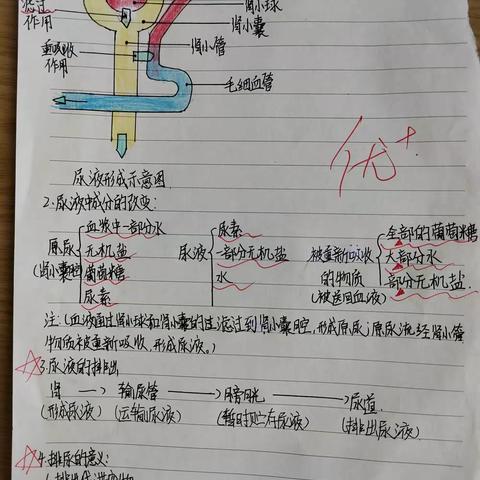 滤过
作用
肾小球
肾小囊
肾小管
重吸收
作用
毛细血管
优+
尿液形成示意图
2.尿液中成分的改变:
原尿
(肾小囊腔)
血浆中一部分水
无机盐
葡萄糖
尿素
尿液
尿素
一部分无机盐
水
被重新吸收
的物质
(被送回血液)
全部的葡萄糖
大部分水
部分无机盐.
注:(血液流过肾小球和肾小囊的过滤过到肾小囊腔,形成原尿;原尿流经肾小管
物质被重新吸收,形成尿液。)
☆3.尿液的排出
肾 → 输尿管 → 膀胱 → 尿道
(形成尿液) (运输尿液) (暂时贮存尿液) (排出尿液)
☆4.排尿的意义: